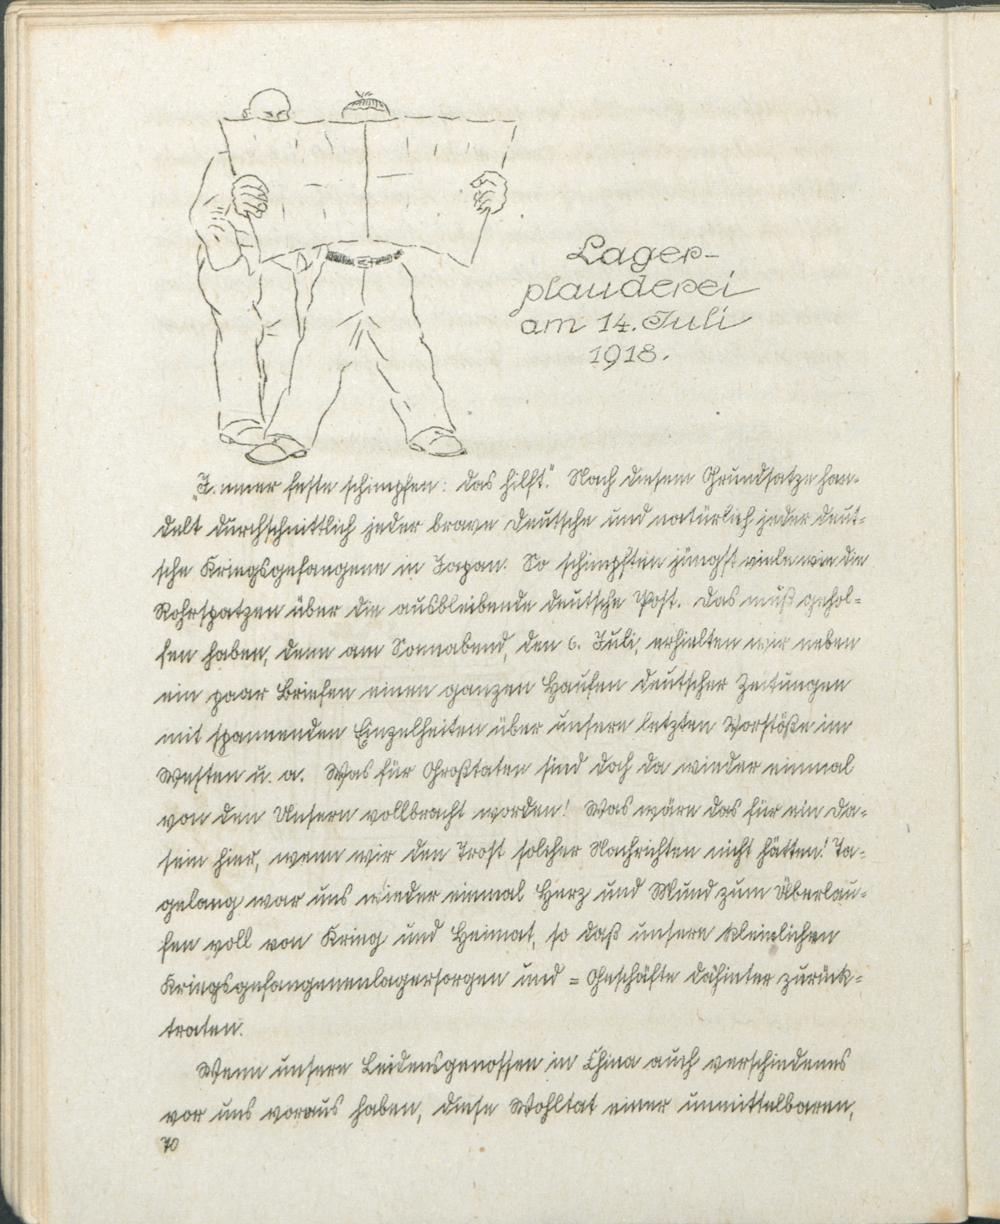 Lager-
plauderei
am 14. Juli
1918.
„Immer feste schimpfen: das hilft.“ Nach diesem Grundsatze han-
delt durchschnittlich jeder brave Deutsche und natürlich jeder deut-
sche Kriegsgefangene in Japan. So schimpften jüngst viele wie die
Rohrspatzen über die ausbleibende deutsche Post. Das muß gehol-
fen haben, denn am Sonnabend, den 6. Juli, erhielten wir neben
ein paar Briefen einen ganzen Haufen deutscher Zeitungen
mit spannenden Einzelheiten über unsere letzten Vorstöße im
Westen u. a. Was für Großtaten sind doch da wieder einmal
von den Unsern vollbracht worden! Was wäre das für ein Da-
sein hier, wenn wir den Trost solcher Nachrichten nicht hätten! Ta-
gelang war uns wieder einmal Herz und Mund zum Überlau-
fen voll von Krieg und Heimat, so daß unsere kleinlichen
Kriegsgefangenenlagersorgen und =Geschäfte dahinter zurück-
traten.
Wenn unsere Leidensgenossen in China auch verschiedenes
vor uns voraus haben, diese Wohltat einer unmittelbaren,
70